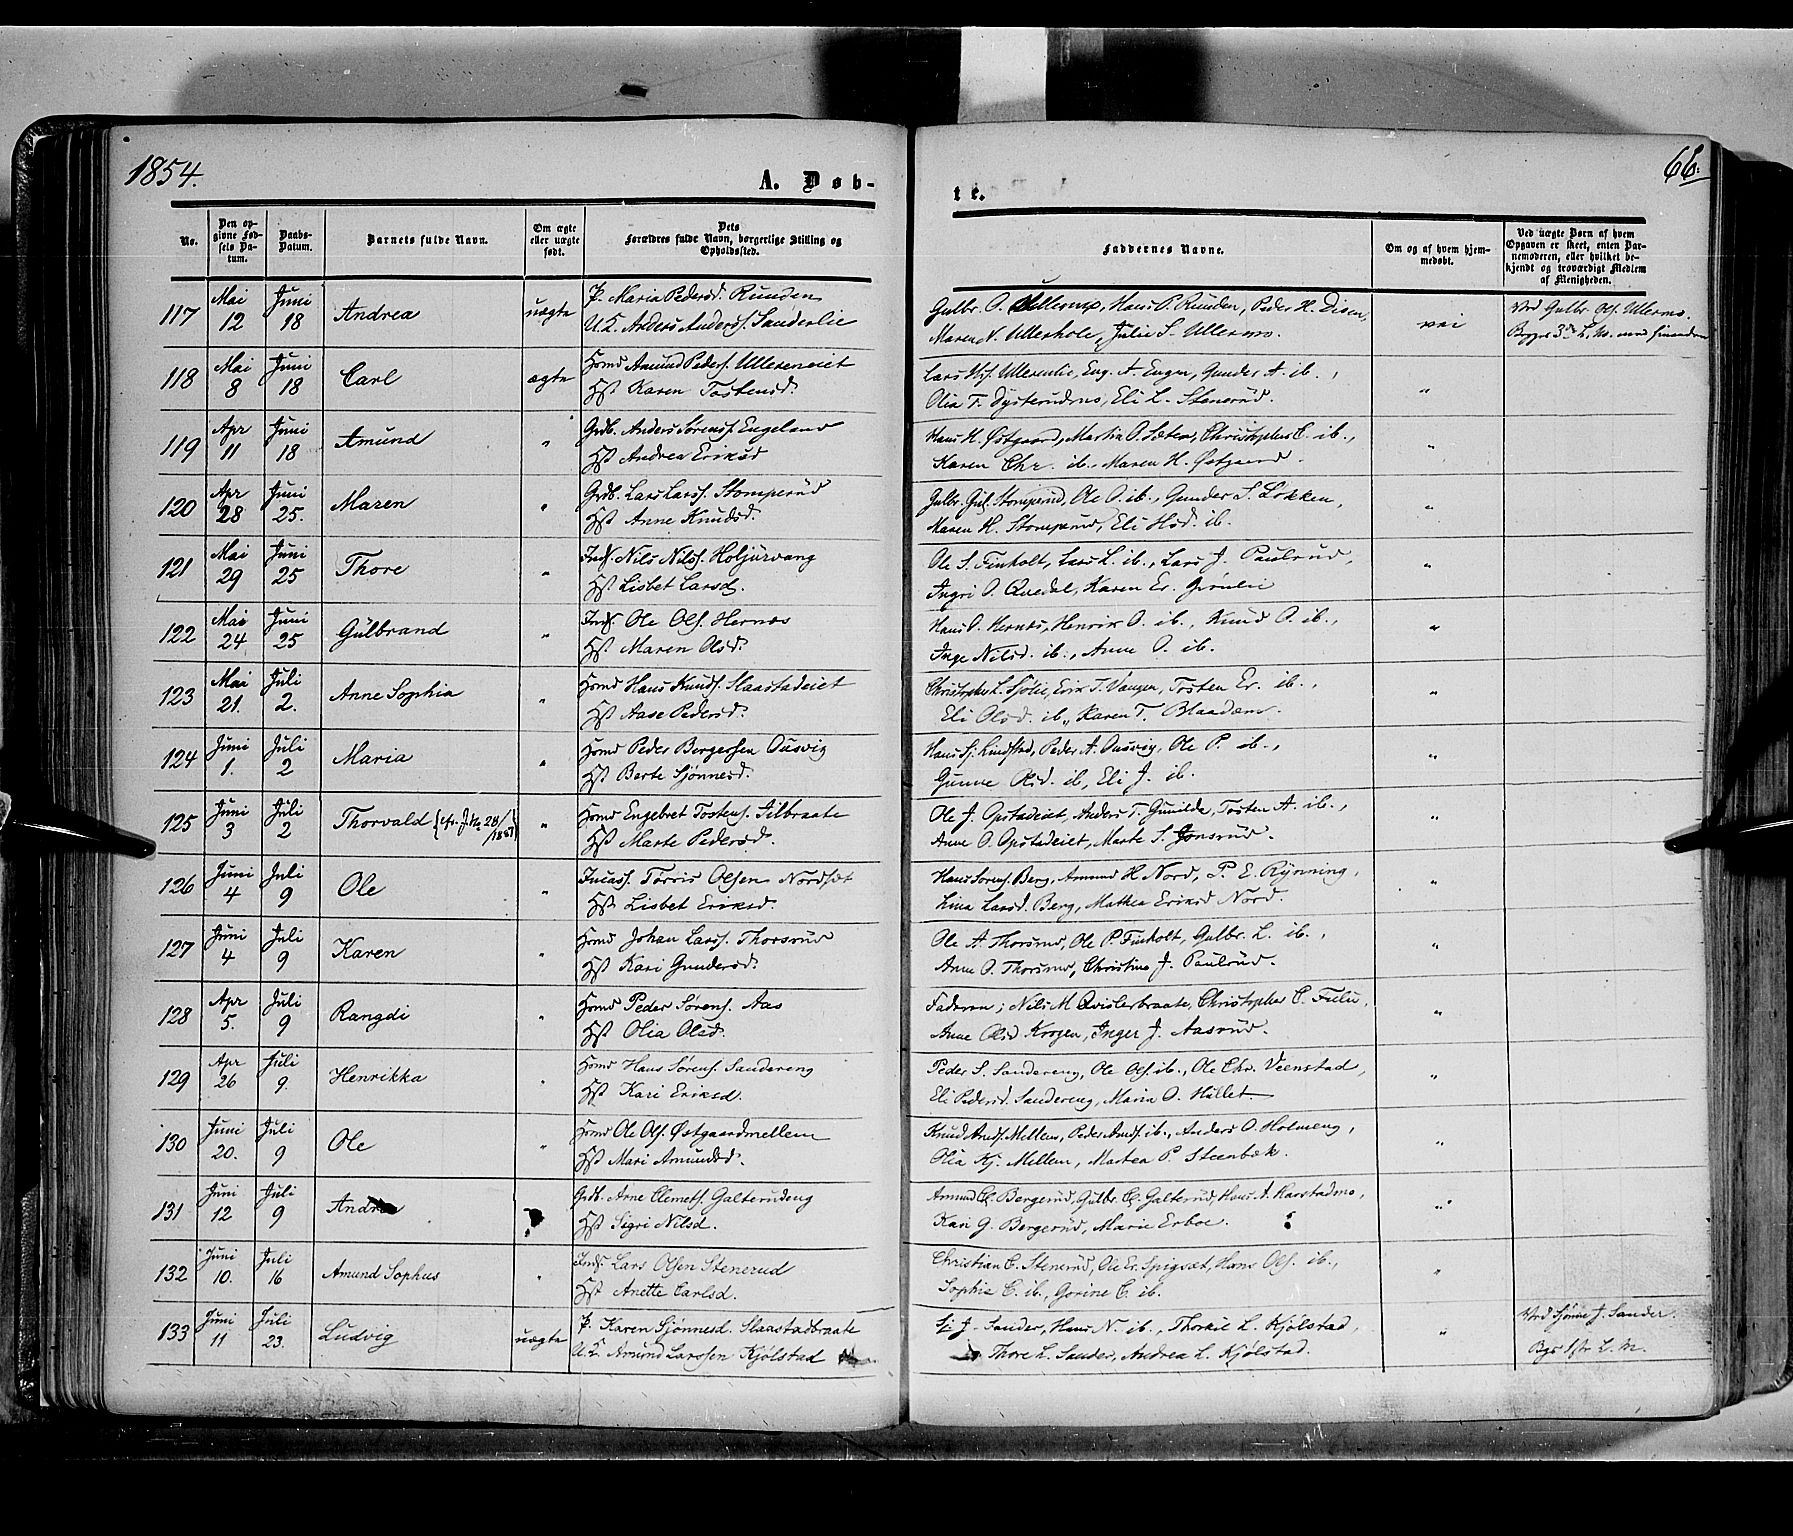 1854.
A. Døb-
te.
66.
No.
Den op-
givne Fød-
sels Da-
tum.
Daabs-
Datum.
Barnets fulde Navn.
Om ægte
eller uægte
født.
Dets
Forældres fulde Navn, borgerlige Stilling og
Opholdssted.
Faddernes Navne.
Om og af hvem hjem-
medøbt.
Ved uægte Børn af hvem
Opgaven er skeet, enten Bar-
nemoderen, eller hvilket be-
kjendt og troværdigt Medlem
af Menigheden.
117 Mai 12 Juni 18 Andrea uægte P. Maria Pedersd. Runden
U.K. Anders Anders. Sanderlie
Gulbr. O. Ullermo, Hans P. Runden, Peder H. Disen,
Maren N. Ullershole, Julie S. Ullermo.
nei
Ved Gulbr. Ols. Ullermo.
118 Mai 8 Juni 18 Carl ægte Hmd Amund Peders. Ullereneiet
Hst Karen Tostensd.
Lars Ullerenlie, Eng. A. Engen, Gunder A. ib.,
Olia T. Dysterudmo, Eli L. Stenerud. "
119 Apr 11 Juni 18 Amund " Grdb. Anders Sørens. Engeland
Hst Andrea Eriksd
Hans H. Østgaard, Martin O. Sæten, Christopher C. ib.,
Karen Chr. ib., Maren H. Østgaard. "
120 Apr 28 Juni 25. Maren " Grdb. Lars Larss. Stomperud
Hst Anne Knudsd.
Gulbr. Gul. Stomperud, Ole O. ib., Gunder S. Løkken,
Maren H. Stomperud, Eli Hsd. ib. "
121 Mai 29 Juni 25 Thore " Inds. Nils Nilss. Holjurvang
Hst Lisbet Larsd.
Ole S. Finholt, Lars L. ib., Lars J. Paulrud,
Ingri O. Qvedal, Karen Er. Grønlie "
122 Mai 24 Juni 25 Gulbrand " Inds. Ole Ols. Hernes
Hst Maren Olsd.
Hans O. Hernes, Henrik O. ib., Knud O. ib.,
Inge Nilsd. ib., Anne O. ib. "
123 Mai 21. Juli 2. Anne Sophia " Hmd Hans Knuds. Slaastadeiet
Hst Aase Pedersd.
Christopher L. Sjølie, Erik T. Vangen, Tosten Er. ib.,
Eli Olsd. ib., Karen T. Blaadam. "
124 Juni 1. Juli 2 Maria " Hmd Peder Bergersen Ousvig
Hst Berte Sjønnesd.
Hans Sj. Lindstad, Peder A. Ousvig, Ole P. ib.,
Gunne Olsd. ib, Eli J. ib. "
125 Juni 3 Juli 2 Thorvald {cfr. J.No 28/1857} " Hmd Engebret Tostens. Tilbraate
Hst Marte Pedersd.
Ole J. Opstadeiet, Anders T. Gunilda, Tosten A. ib.,
Anne O. Opstadeiet, Marte S. Jonsrud. "
126 Juni 4 Juli 9 Ole " Torris Olsen Nordsæt
Hst Lisbet Eriksd.
Hans Sorens. Berg, Amund H. Nord, P. E. Rynning,
Lina Larsd. Berg, Mathea Eriksd Nord. "
127 Juni 4 Juli 9 Karen " Hmd Johan Larss. Thorsrud
Hst Kari Gundersd.
Ole A. Thorsrud, Ole P. Finholt, Gulbr. L. ib.,
Anne O. Thorsrud, Christine J. Paulrud. "
128 Apr 5. Juli 9 Rangdi " Hmd Peder Sørens. Aas
Hst Olia Olsd.
Faderen; Nils M. Qvislerbraate, Christopher C. Fulu,
Anne Olsd Krogen, Inger J. Aasrud. "
129 Apr 26 Juli 9. Henrikka " Hmd Hans Sørens. Sandereng
Hst Kari Eriksd.
Peder S. Sandereng, Ole Ols. ib., Ole Chr. Veenstad,
Eli Pedersd. Sandereng, Maria O. Hullet "
130 Juni 20. Juli 9 Ole " Hmd Ole Ols. Østgaardmellem
Hst Mari Amundsd.
Knud Amds. Mellem, Peder Amds. ib., Anders O. Holmeng,
Olia Kj. Mellem, Martea P. Steenbæk. "
131 Juni 12 Juli 9 Grdb. Arne Clemets. Galterudeng
Hst Sigri Nilsd.
Amund Cl. Bergerud, Gulbr. C. Galterud, Hans A. Harstadmo,
Kari G. Bergerud, Marie Erboe. "
132 Juni 10. Juli 16 Amund Sophus " Inds. Lars Olsen Stenerud
Hst Anette Carlsd.
Christian C. Stenerud, Ole Er. Spigsæt, Hans Ols. ib.,
Sophie C. ib., Gorine C. ib. "
133 Juni 11 Juli 23. Ludvig uægte P. Karen Sjønnesd. Slaastadbraate
U.K. Amund Larssen Kjølstad
Sj. J. Sander, Hans N. ib., Thorkil L. Kjølstad,
Thore L. Sander, Andrea L. Kjølstad. "
Ved Sjønne J. Sander.
Bgs 1ste L. M.